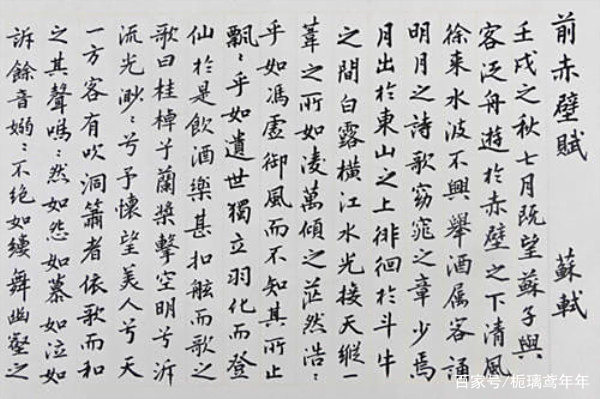 前赤壁賦 蘇軾
壬戌之秋七月既望蘇子與
客泛舟遊於赤壁之下清風
徐來水波不興舉酒属客誦
明月之詩歌窈窕之章少焉
月出於東山之上徘徊於斗牛
之間白露橫江水光接天縱一
葦之所如凌萬傾之茫然浩〻
乎如馮虛御風而不知其所止
飄〻乎如遺世獨立羽化而登
仙於是飲酒樂甚扣舷而歌之
歌曰桂棹兮蘭槳擊空明兮泝
流光渺〻兮予懷望美人兮天
一方客有吹洞簫者依歌而和
之其聲嗚〻然如怨如慕如泣如
訴餘音嫋〻不絕如縷舞幽壑之
百家号/栀璃鸢年年